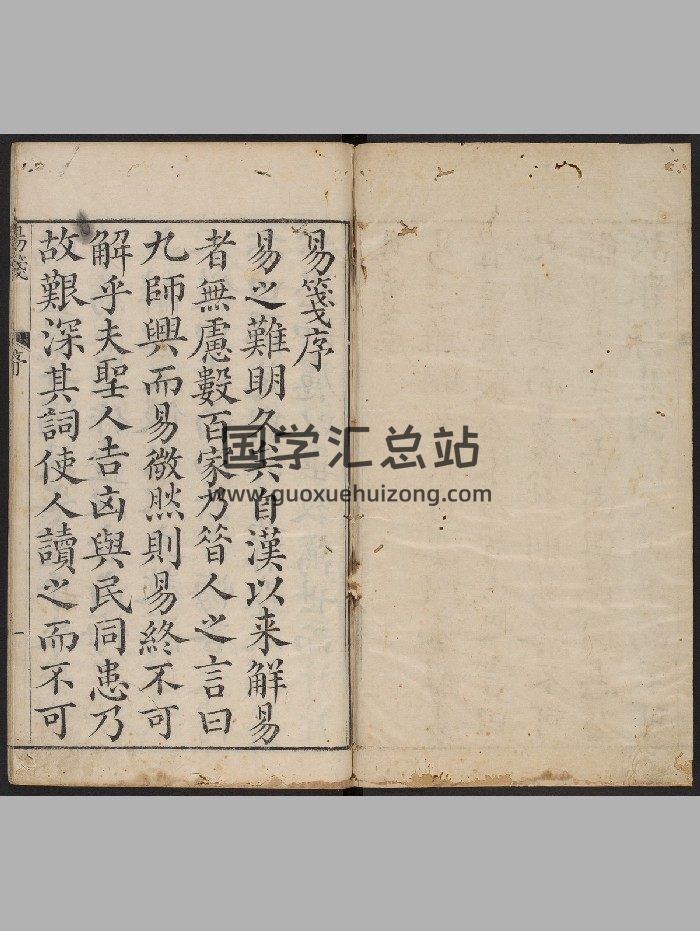 易箋序
易之難明久矣自漢以来解易
者無慮數百家乃簮人之言曰
九師興而易微然則易終不可
解乎夫聖人吉凶與民同患乃
故艱深其詞使人讀之而不可
易箋
序
一
国学汇总站
www.guoxuehuizong.com